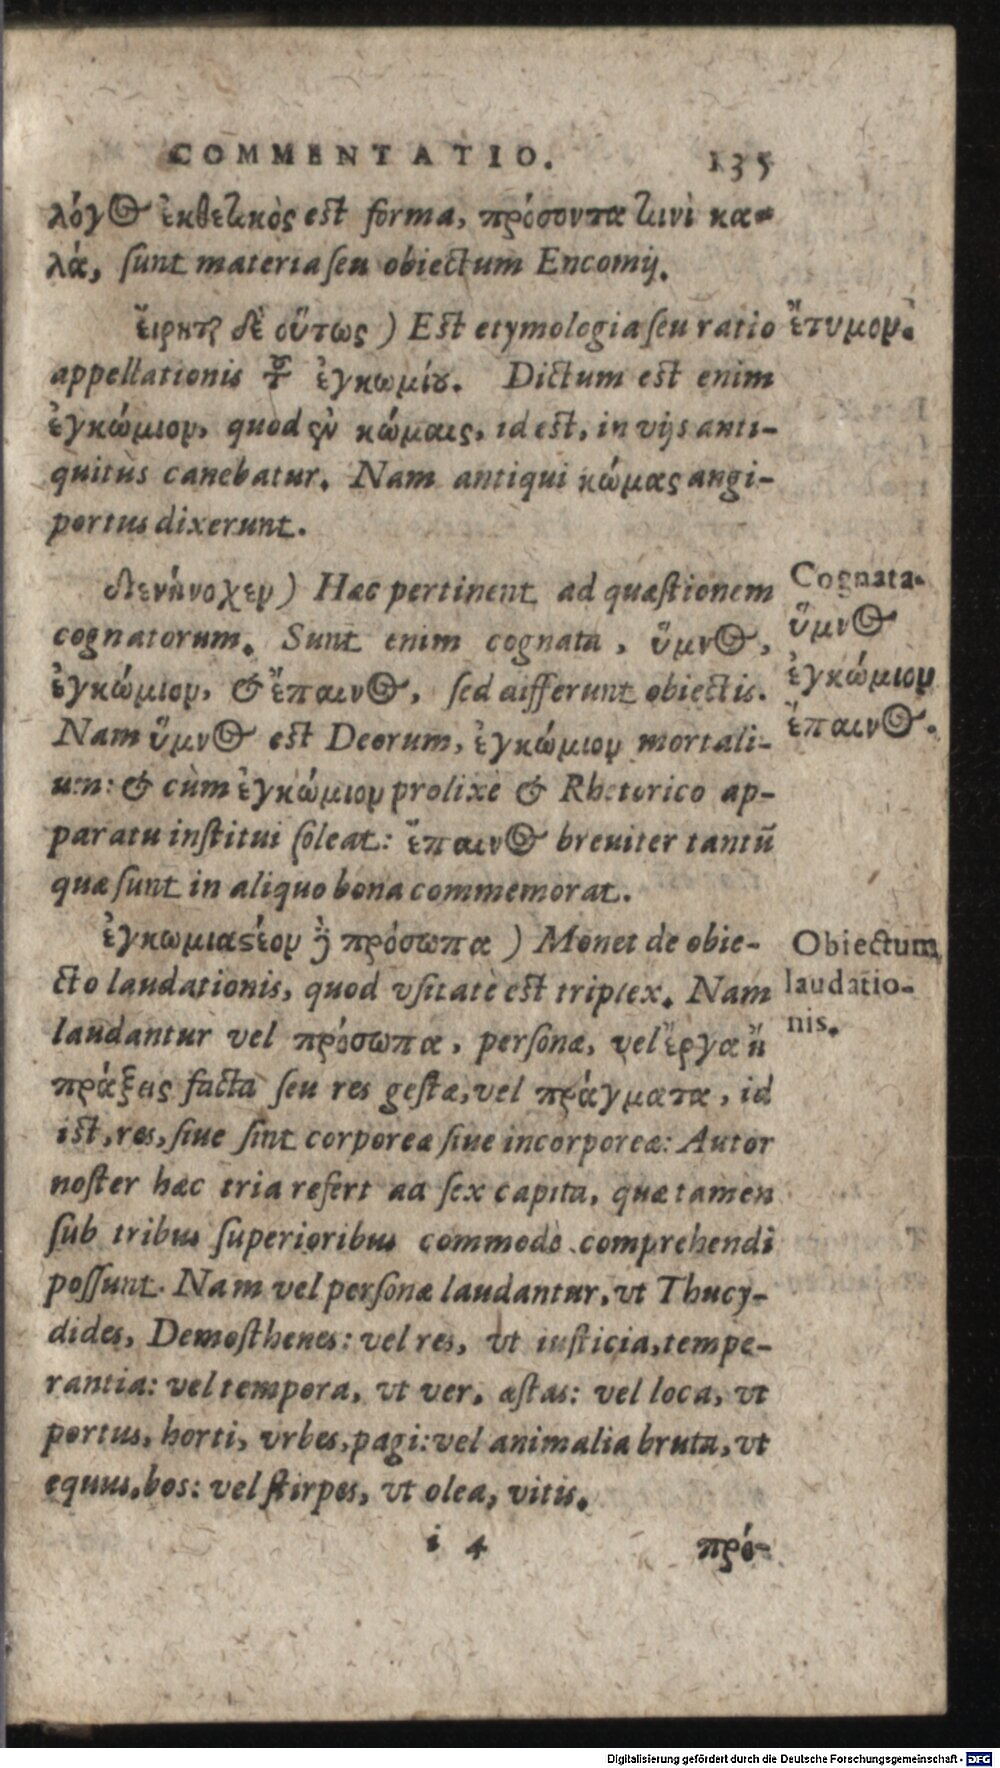 COMMENTATIO. 135
λόγος ἐκθετικὸς est forma, πρόσοντα τινὶ κα-
λά, sunt materia seu obiectum Encomij.
ἔιρηται δὲ οὕτως ) Est etymologia seu ratio ἔτυμον.
appellationis τοῦ ἐγκωμίου. Dictum est enim
ἐγκώμιον, quod ἐν κώμαις, id est, in vijs anti-
quitùs canebatur. Nam antiqui κώμας angi-
portus dixerunt.
διενήνοχεν ) Hæc pertinent ad quæstionem
cognatorum. Sunt enim cognata, ὕμνος,
ἐγκώμιον, & ἔπαινος, sed differunt obiectis.
Nam ὕμνος est Deorum, ἐγκώμιον mortali-
um: & cùm ἐγκώμιον prolixè & Rhetorico ap-
paratu institui soleat: ἔπαινος breuiter tantũ
quæ sunt in aliquo bona commemorat.
Cognata.
ὕμνος
ἐγκώμιον
ἔπαινος.
ἐγκωμιαστέον δὲ πρόσωπα ) Monet de obie-
cto laudationis, quod vsitatè est triplex. Nam
laudantur vel πρόσωπα, personæ, vel ἔργα ἢ
πράξεις facta seu res gestæ, vel πράγματα, id
ist, res, siue sint corporeæ siue incorporeæ: Autor
noster hæc tria refert ad sex capita, quæ tamen
sub tribus superioribus commodè comprehendi
possunt. Nam vel personæ laudantur, vt Thucy-
dides, Demosthenes: vel res, vt iusticia, tempe-
rantia: vel tempora, vt ver, æstas: vel loca, vt
portus, horti, vrbes, pagi: vel animalia bruta, vt
equus, bos: vel stirpes, vt olea, vitis.
Obiectum
laudatio-
nis.
i 4 πρό-
Digitalisierung gefördert durch die Deutsche Forschungsgemeinschaft - DFG